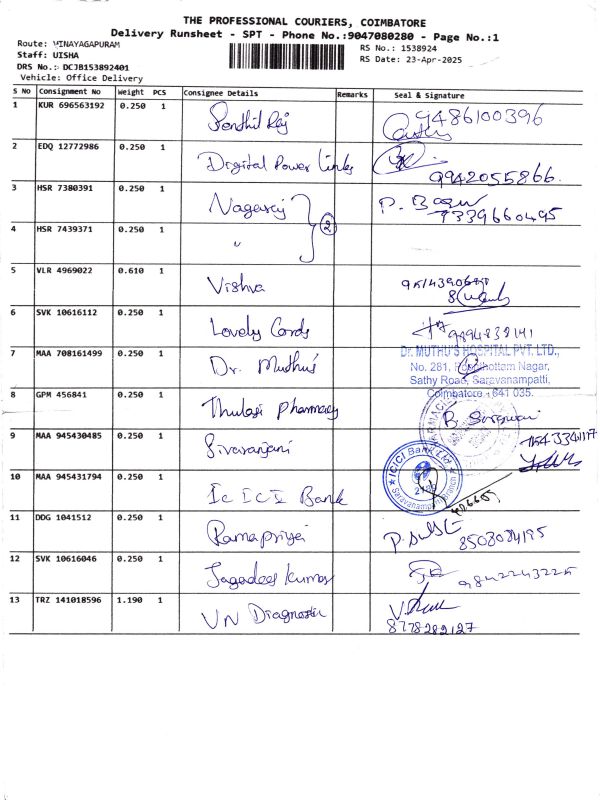 THE PROFESSIONAL COURIERS, COIMBATORE
Delivery Runsheet - SPT - Phone No.:9047080280 - Page No.:1
Route: VINAYAGAPURAM
Staff: UISHA
DRS No.: DCJB153892401
Vehicle: Office Delivery
RS No.: 1538924
RS Date: 23-Apr-2025
S No Consignment No Weight PCS Consignee Details Remarks Seal & Signature
1 KUR 696563192 0.250 1 Senthil Raj 9486100396
2 EDQ 12772986 0.250 1 Digital Power Links 9942055866
3 HSR 7380391 0.250 1 Nagaraj 2 P. Basu 9339660495
4 HSR 7439371 0.250 1 "
5 VLR 4969022 0.610 1 Vishva
6 SVK 10616112 0.250 1 Lovely Cards 9894838141
7 MAA 708161499 0.250 1 Dr. Muthu's
Dr. MUTHU'S HOSPITAL PVT. LTD.,
No. 281, Purushottam Nagar,
Sathy Road, Saravanampatti,
Coimbatore - 641 035.
8 GPM 456841 0.250 1 Thulasi Pharmacy
9 MAA 945430485 0.250 1 Sivaranjani
10 MAA 945431794 0.250 1 IcICI Bank
ICICI Bank Ltd
Saravanampatti Branch
11 DDG 1041512 0.250 1 Ramapriya 8508084195
12 SVK 10616046 0.250 1 Jagadees Kumar 9842243225
13 TRZ 141018596 1.190 1 VN Diagnostic 8778282127